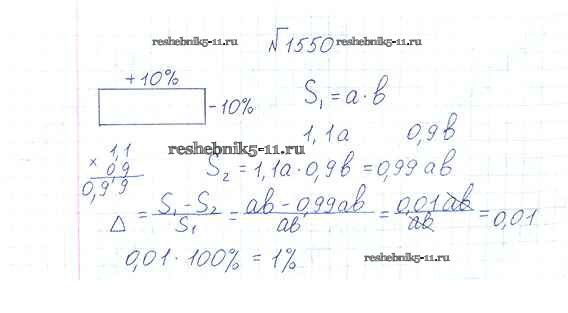 reshebnik5-11.ru №1550 reshebnik5-11.ru
+10%
-10%
S₁ = a · b
1,1a 0,9b
reshebnik5-11.ru
1,1
× 0 9
0,9 9
S₂ = 1,1a · 0,9b = 0,99 ab
Δ = (S₁ - S₂)/S₁ = (ab - 0,99ab)/ab = 0,01 ab/ab = 0,01
0,01 · 100% = 1%
resheBnik5-11.ru